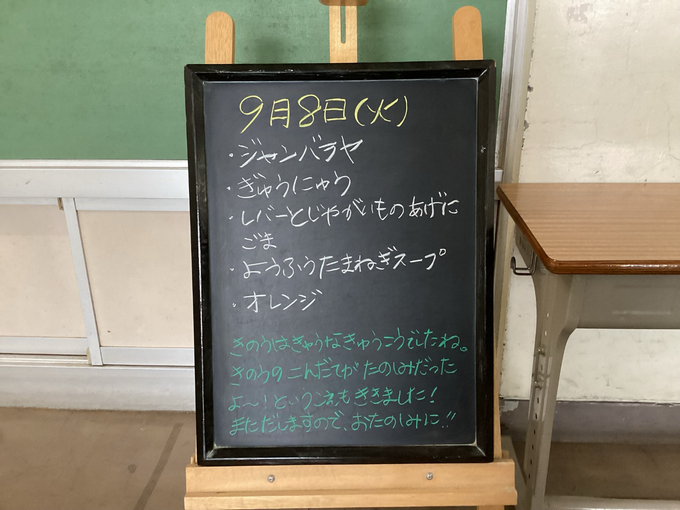 9月8日(火)
・ジャンバラヤ
・ぎゅうにゅう
・レバーとじゃがいものあげに
ごま
・ようふうたまねぎスープ
・オレンジ
きのうはきゅうなきゅうこうでしたね。
きのうのこんだてがたのしみだった
よ〜!というこえもききました!
まただしますので、おたのしみに!!